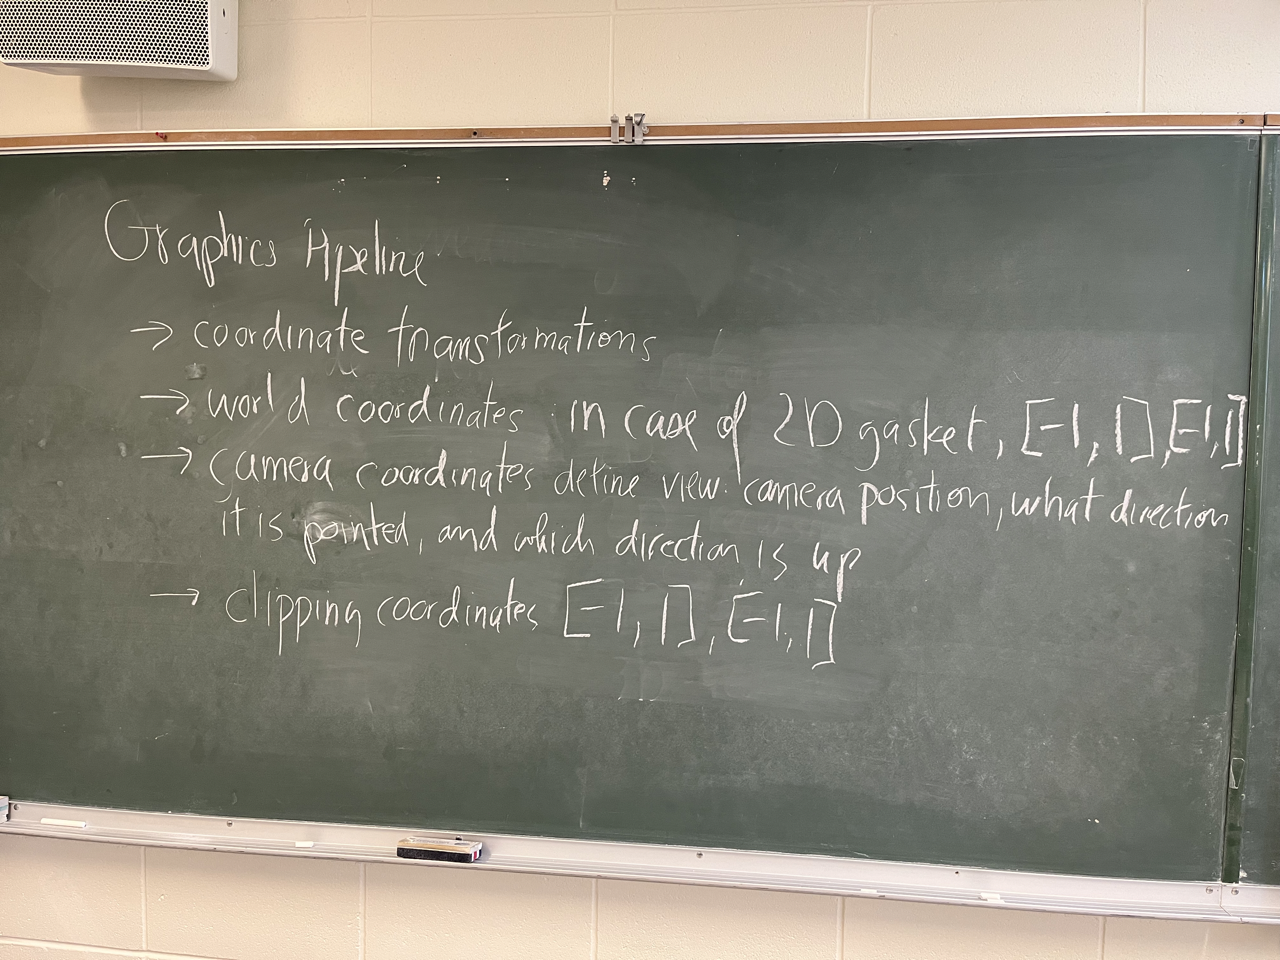 Graphics Pipeline
→ coordinate transformations
→ world coordinates in case of 2D gasket, [-1, 1], [-1, 1]
→ camera coordinates define view. camera position, what direction
it is pointed, and which direction is up
→ clipping coordinates [-1, 1], [-1, 1]